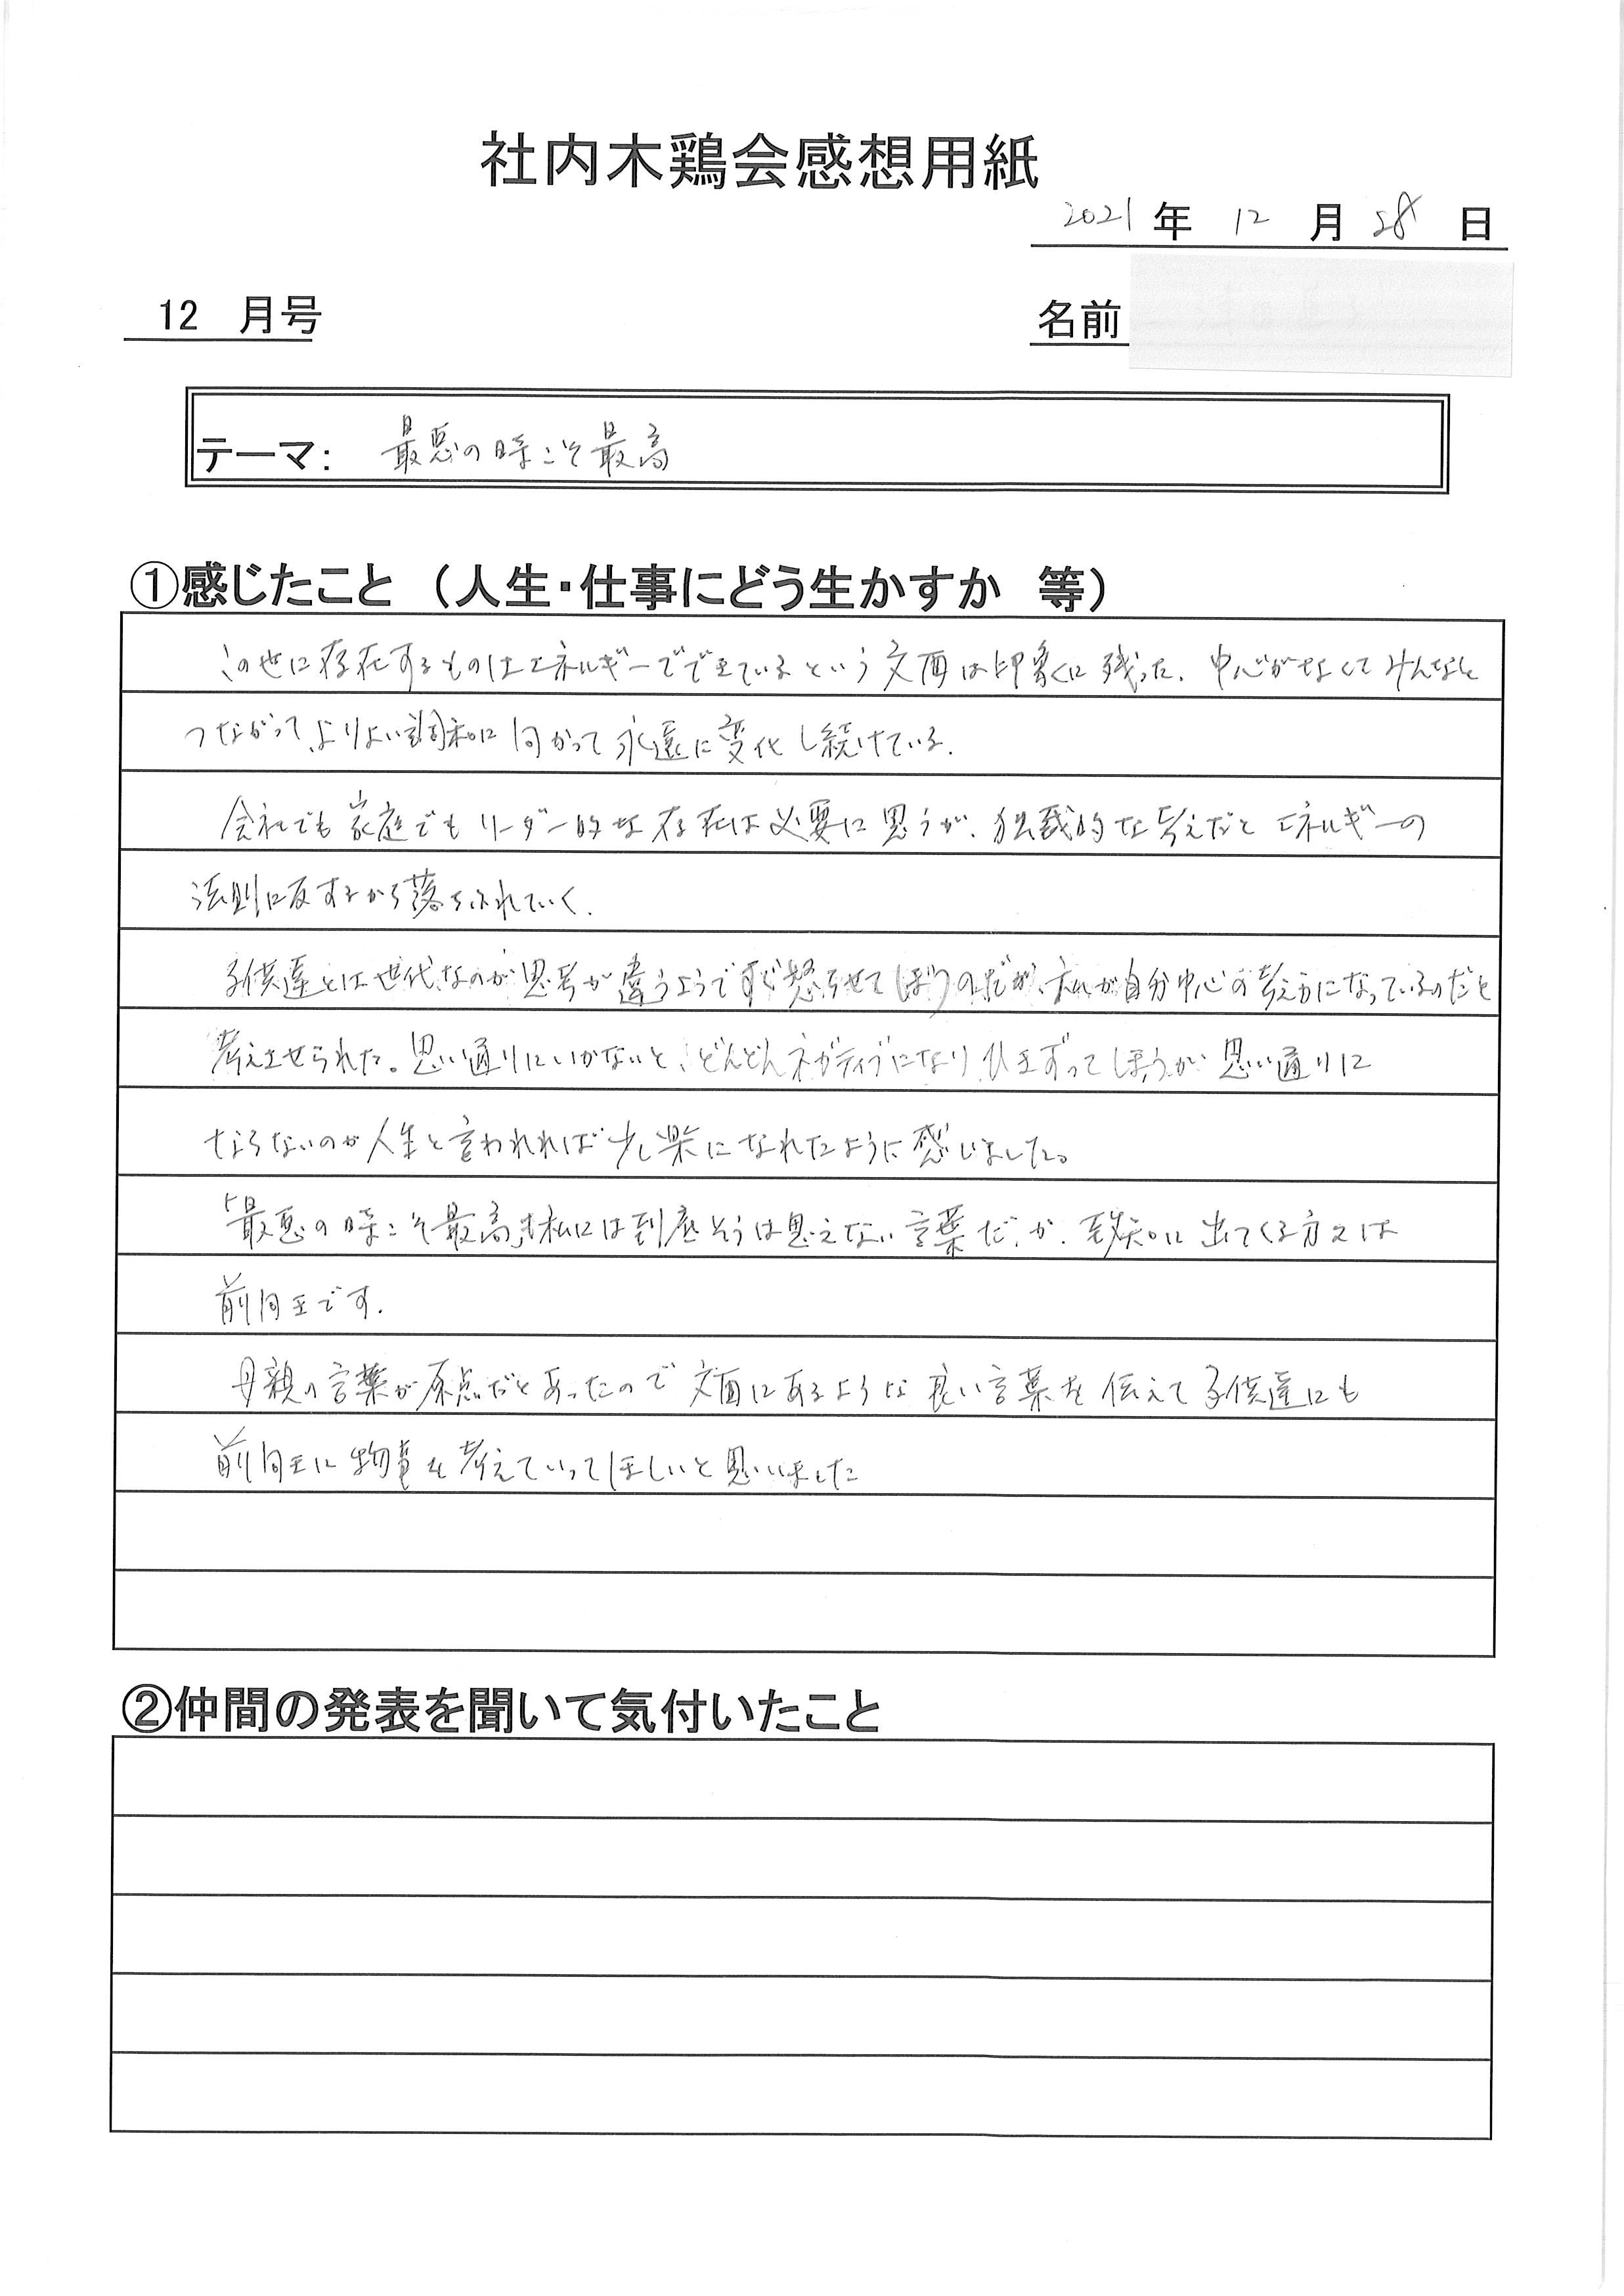 社内木鶏会感想用紙
2021年 12月 28日
12 月号
名前
テーマ: 最悪の時こそ最高
①感じたこと (人生・仕事にどう生かすか 等)
この世に存在するものはエネルギーでできているという文面は印象に残った。中心がなくてみんなと
つながって、よりよい調和に向かって永遠に変化し続けている。
会社でも家庭でもリーダー的な存在は必要に思うが、独裁的な考えだとエネルギーの
法則に反するから落ちぶれていく。
子供達とは世代なのか思考が違うようですぐ怒らせてしまうのだが、私が自分中心の考え方になっているのだと
考えさせられた。思い通りにいかないと、どんどんネガティブになりひきずってしまうが思い通りに
ならないのが人生と言われれば少し楽になれたように感じました。
「最悪の時こそ最高」も私には到底そうは思えない言葉だが、致知に出てくる方々は
前向きです。
母親の言葉が原点だとあったので文面にあるような良い言葉を伝えて子供達にも
前向きに物事を考えていってほしいと思いました
②仲間の発表を聞いて気付いたこと